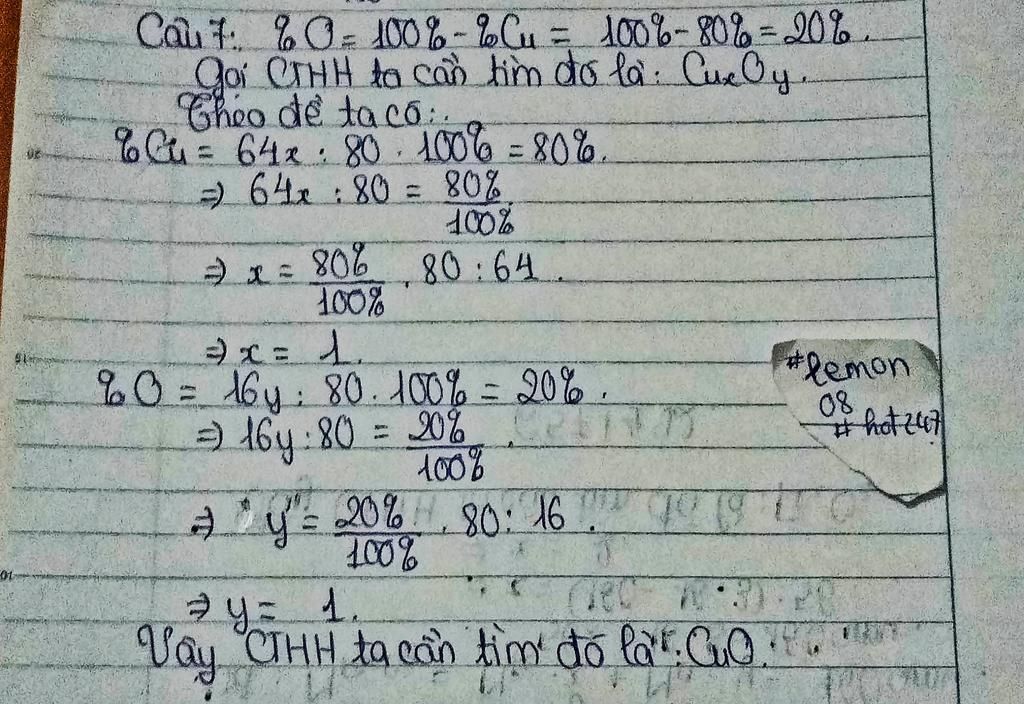 Câu 7: %O = 100% - %Cu = 100% - 80% = 20%.
Gọi CTHH ta cần tìm đó là: CuxOy.
Theo đề ta có:
%Cu = 64x : 80 . 100% = 80%.
=> 64x : 80 = 80%/100%
=> x = 80%/100% . 80 : 64.
=> x = 1.
%O = 16y : 80 . 100% = 20%.
=> 16y : 80 = 20%/100%.
=> y = 20%/100% . 80 : 16.
=> y = 1.
Vậy CTHH ta cần tìm đó là: CuO.
#lemon
08
# hot247